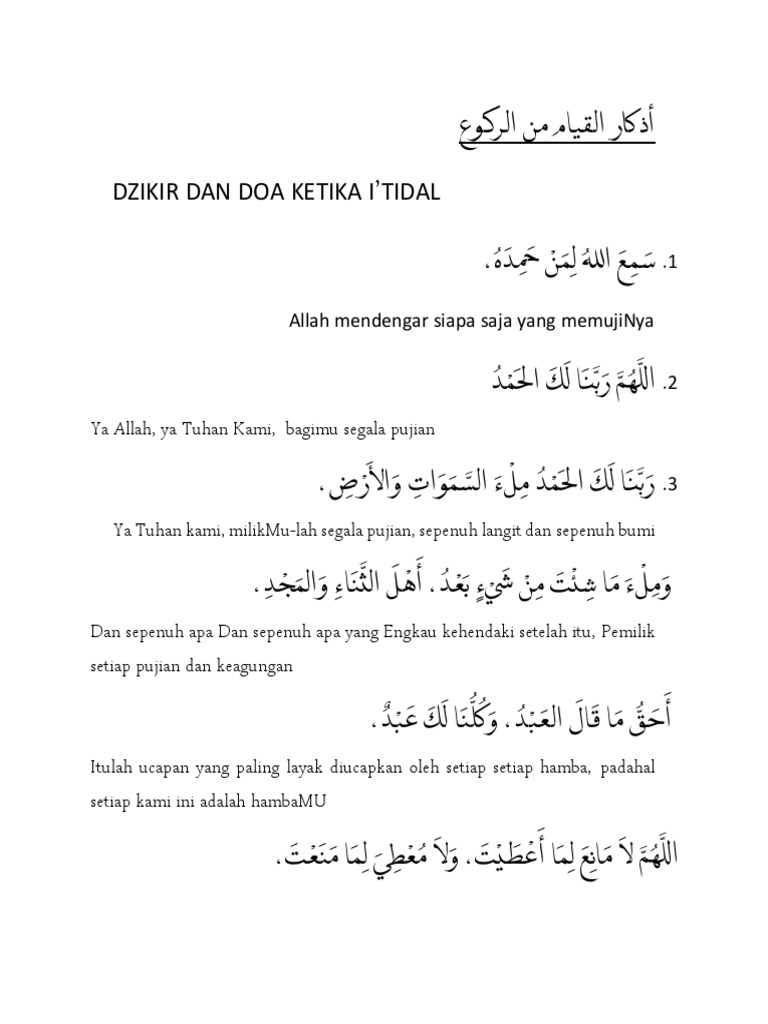 أذكار القيام من الركوع
DZIKIR DAN DOA KETIKA I’TIDAL
1. سَمِعَ اللهُ لِمَنْ حَمِدَهُ،
Allah mendengar siapa saja yang memujiNya
2. اللَّهُمَّ رَبَّنَا لَكَ الحَمْدُ
Ya Allah, ya Tuhan Kami,  bagimu segala pujian
3. رَبَّنَا لَكَ الحَمْدُ مِلْءَ السَّمَوَاتِ وَالأَرْضِ،
Ya Tuhan kami, milikMu-lah segala pujian, sepenuh langit dan sepenuh bumi
وَمِلْءَ مَا شِئْتَ مِنْ شَيْءٍ بَعْدُ، أَهْلَ الثَّنَاءِ وَالمَجْدِ،
Dan sepenuh apa Dan sepenuh apa yang Engkau kehendaki setelah itu, Pemilik
setiap pujian dan keagungan
أَحَقُّ مَا قَالَ العَبْدُ، وَكُلُّنَا لَكَ عَبْدٌ،
Itulah ucapan yang paling layak diucapkan oleh setiap setiap hamba, padahal
setiap kami ini adalah hambaMU
اللَّهُمَّ لاَ مَانِعَ لِمَا أَعْطَيْتَ، وَلاَ مُعْطِيَ لِمَا مَنَعْتَ،